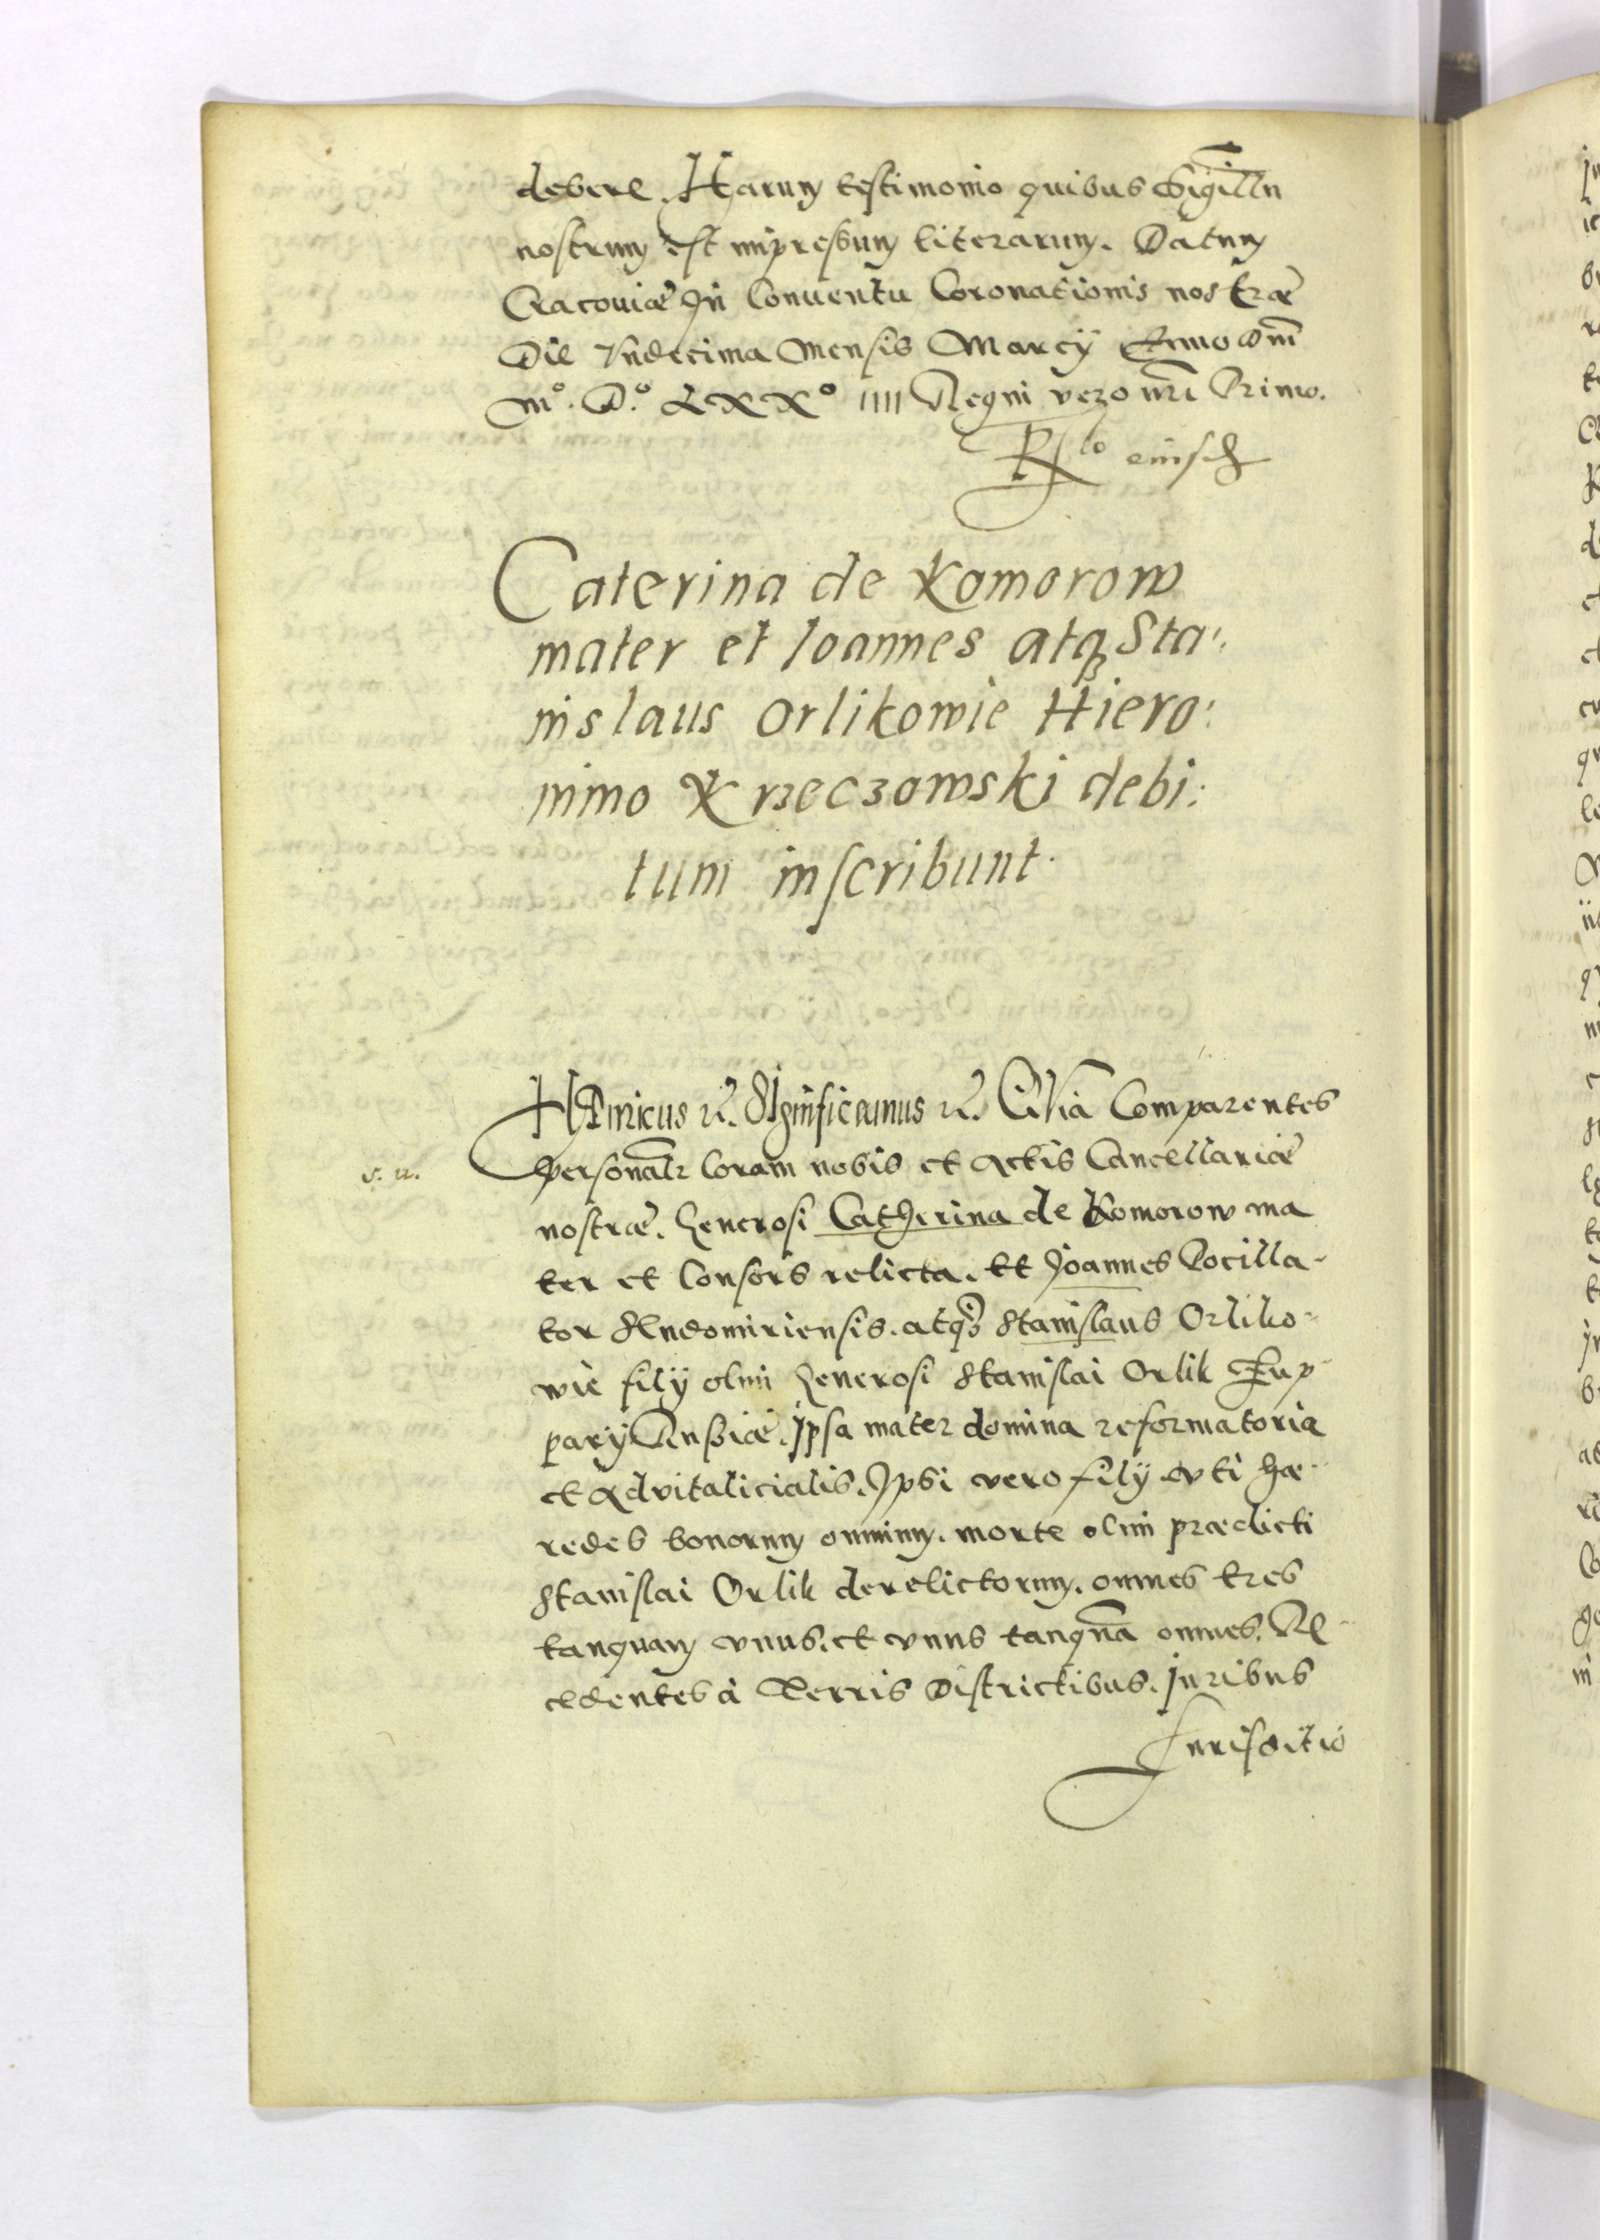 debere. Harum testimonio quibus Sigillu
nostrum est impressum literarum. Datum
Cracoviæ In Conventu Coronationis nostræ
Die Vndecima Mensis Marcÿ Anno Dnī
Mº. D.º LXXº IIII Regni vero nrī Primo.
Rlo eiusd
Caterina de Komorow
mater et Ioannes atq Sta:
nislaus Orlikowie Hiero:
nimo Krzeczowski debi:
tum inscribunt.
HEnricus rc. SIgnificamus rc. Quia Comparentes
s. n.
personalr coram nobis et Actis Cancellariæ
nostræ. Generosi Catherina de Komorow ma
ter et Consors relicta. et Joannes Pocilla-
tor Sendomiriensis. atq Stanislaus Orliko-
wie filÿ olim Generosi Stanislai Orlik Sup
parÿ. Ipsa mater domina reformatoria
et Advitalicialis. Ipsi vero filÿ vti hæ-
redes bonorum omnium. morte olim prædicti
Stanislai Orlik derelictorum. omnes tres
tanquam vnus. et vnus tanquā omnes. Re-
cedentes à Terris Districtibus. Juribus
Jurisditio